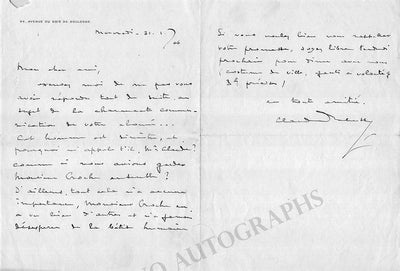 64, AVENUE DU BOIS DE BOULOGNE
Mercredi - 31. 1.
Mon cher ami,
excusez moi de ne pas vous
avoir répondu tout de suite, au
sujet de la charmante commu-
nication de votre
Cet homme est sinistre, et
pourquoi s'appelle t'il, Mr Claude?
comme si nous avions
Monsieur Croche ensemble?
D'ailleurs, tout cela n'a aucune
importance, Monsieur Croche en
a vu bien d'autres et n'a jamais
désespéré de la bêtise humaine
Si vous voulez bien vous rappeler
votre promesse, soyez libre Vendredi
prochain pour dîner avec nous
(costume de ville,
en toute amitié.
Claude Debussy
AUTOGRAPHS